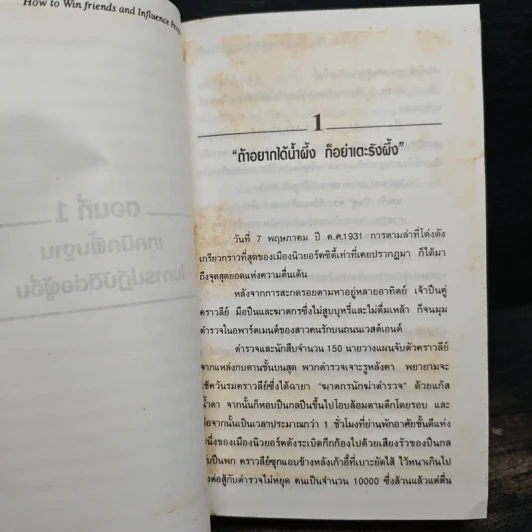 How to Win friends and Influence
1
"ถ้าอยากได้น้ำผึ้ง ก็อย่าเตะรังผึ้ง"
ตอนที่ 1
เทคนิคพื้นฐาน
ในการปฏิบัติต่อผู้อื่น
วันที่ 7 พฤษภาคม ปี ค.ศ.1931 การตามล่าที่โด่งดัง
เกรียวกราวที่สุดของเมืองนิวยอร์คซิตี้เท่าที่เคยปรากฏมา ก็ได้มา
ถึงจุดสุดยอดแห่งความตื่นเต้น
หลังจากการสะกดรอยตามหาอยู่หลายอาทิตย์ เจ้าปืนคู่
คราวลีย์ มือปืนและฆาตกรซึ่งไม่สูบบุหรี่และไม่ดื่มเหล้า ก็จนมุม
ตำรวจในอพาร์ตเมนต์ของสาวคนรักบนถนนเวสต์เอนด์
ตำรวจและนักสืบจำนวน 150 นายวางแผนจับตัวคราวลีย์
จากแหล่งกบดานชั้นบนสุด พวกตำรวจเจาะรูหลังคา พยายามจะ
ใช้ควันรมคราวลีย์ซึ่งได้ฉายา "ฆาตกรนักฆ่าตำรวจ" ด้วยแก๊ส
น้ำตา จากนั้นก็หอบปืนกลปืนขึ้นไปโอบล้อมตามตึกโดยรอบ และ
จากนั้นเป็นเวลาประมาณกว่า 1 ชั่วโมงที่ย่านพักอาศัยชั้นดีแห่ง
หนึ่งของเมืองนิวยอร์คดังระเบิดกึกก้องไปด้วยเสียงรัวของปืนกล
ปืนพก คราวลีย์ซุกแอบข้างหลังเก้าอี้ที่เบาะยัดไส้ ไว้หนาเกินไป
ต่อสู้กับตำรวจไม่หยุด คนเป็นจำนวน 10000 ซึ่งล้วนแล้วแต่ตื่น